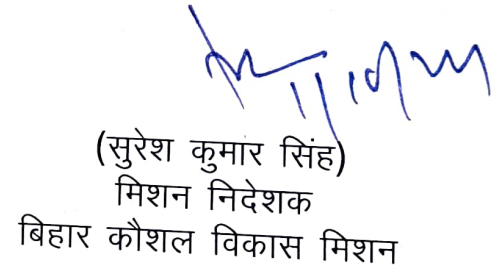 (सुरेश कुमार सिंह)
मिशन निदेशक
बिहार कौशल विकास मिशन